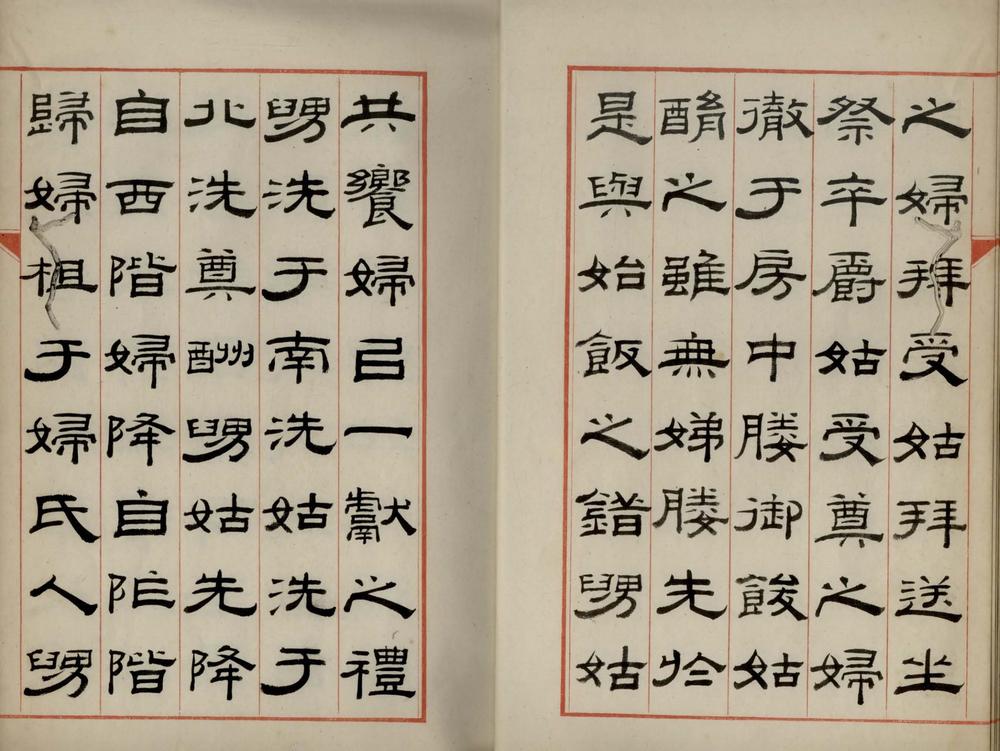 之婦拜受姑拜送坐
祭卒爵姑受奠之婦
徹于房中媵御餕姑
酳之雖無娣媵先於
是與始飯之錯舅姑
共饗婦㠯一獻之禮
舅洗于南洗姑洗于
北洗奠酬舅姑先降
自西階婦降自阼階
歸婦俎于婦氏人舅